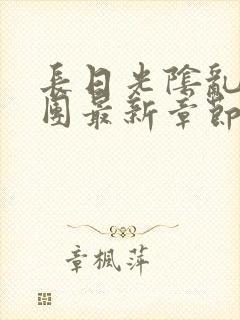 長日光陰亂
團最新章節
章楓萍